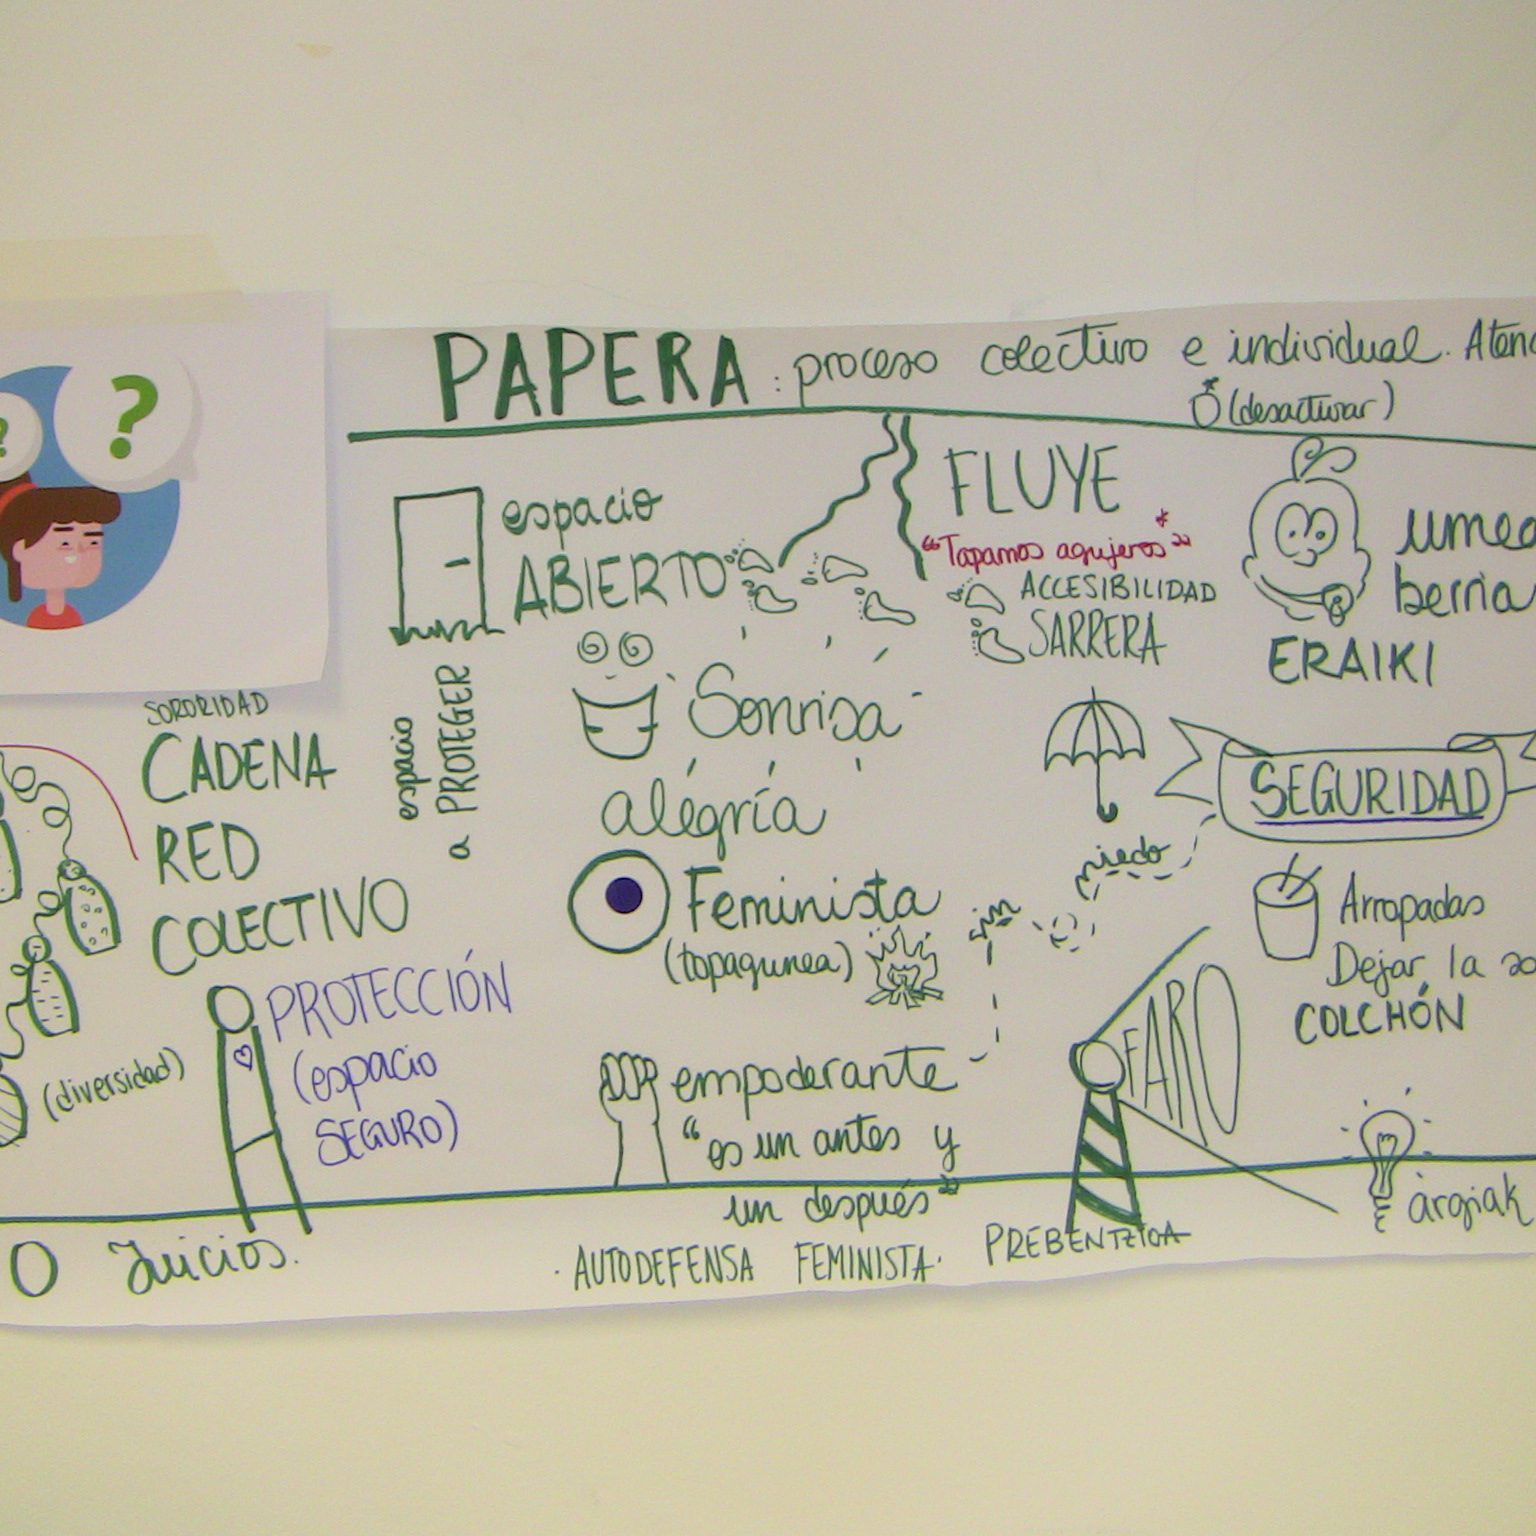 PAPERA : proceso colectivo e individual. Atenc
(desactivar)
? ?
espacio
ABIERTO
espacio
a PROTEGER
FLUYE
"Tapamos agujeros*"
ACCESIBILIDAD
SARRERA
umea
berria
ERAIKI
SORORIDAD
CADENA
RED
COLECTIVO
(diversidad)
PROTECCIÓN
(espacio
SEGURO)
Sonrisa
alegría
Feminista
(topagunea)
empoderante
"es un antes y
un después"
sin miedo
SEGURIDAD
Arropadas
Dejar la
COLCHÓN
FARO
argiak
O Juicios.
· AUTODEFENSA FEMINISTA ·
PREBENTZIOA